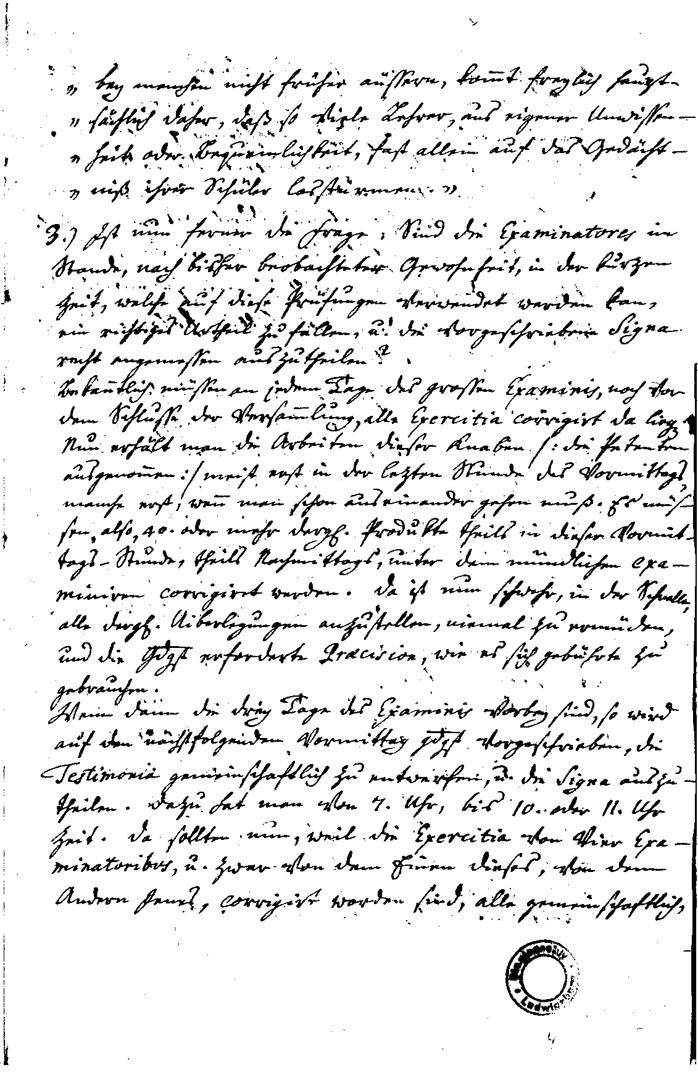 " bey manchen nicht früher äussern, komt freylich haupt-
" sächlich daher, daß so viele Lehrer, aus eigener Unwissen-
" heit oder Bequemlichkeit, fast allein auf das Gedächt-
" niß ihrer Schüler losstürmen. "
3.) Ist nun ferner die Frage: Sind die Examinatores im
Stande, nach bisher beobachteter Gewohnheit, in der kurzen
Zeit, welche auf diese Prüfungen verwendet werden kan,
ein richtiges Urtheil zu fällen, u. die vorgeschriebene Signa
recht angemessen auszutheilen?
Bekantlich müssen an jedem Tage des grossen Examinis, noch vor
dem Schlusse der Versamlung, alle Exercitia corrigirt da liegen.
Nun erhält man die Arbeiten dieser Knaben /: die Petenten
ausgenomen :/ meist erst in der letzten Stunde des Vormittags,
manche erst, wenn man schon auseinander gehen muß. Es müs-
sen, also, 40. oder mehr dergl. Produkte theils in dieser Vormit-
tags-Stunde, theils Nachmittags, unter dem mündlichen exa-
miniren corrigiret werden. Da ist nun schwehr, in der Schnelle,
alle dergl. Uiberlegungen anzustellen, niemal zu ermüden,
und die gdgst erforderte Præcision, wie es sich gebührte zu
gebrauchen.
Wenn dann die drey Tage des Examinis vorbey sind, so wird
auf den nächstfolgenden Vormittag gdgst vorgeschrieben, die
Testimonia gemeinschaftlich zu entwerfen, u. die Signa auszu-
theilen. Dazu hat man von 7. Uhr, bis 10. oder 11. Uhr
Zeit. Da sollten nun, weil die Exercitia von Vier Exa-
minatoribus, u. zwar von dem Einen dieses, von dem
Andern jenes, corrigirt worden sind, alle gemeinschaftlich,
Ludwigsburg